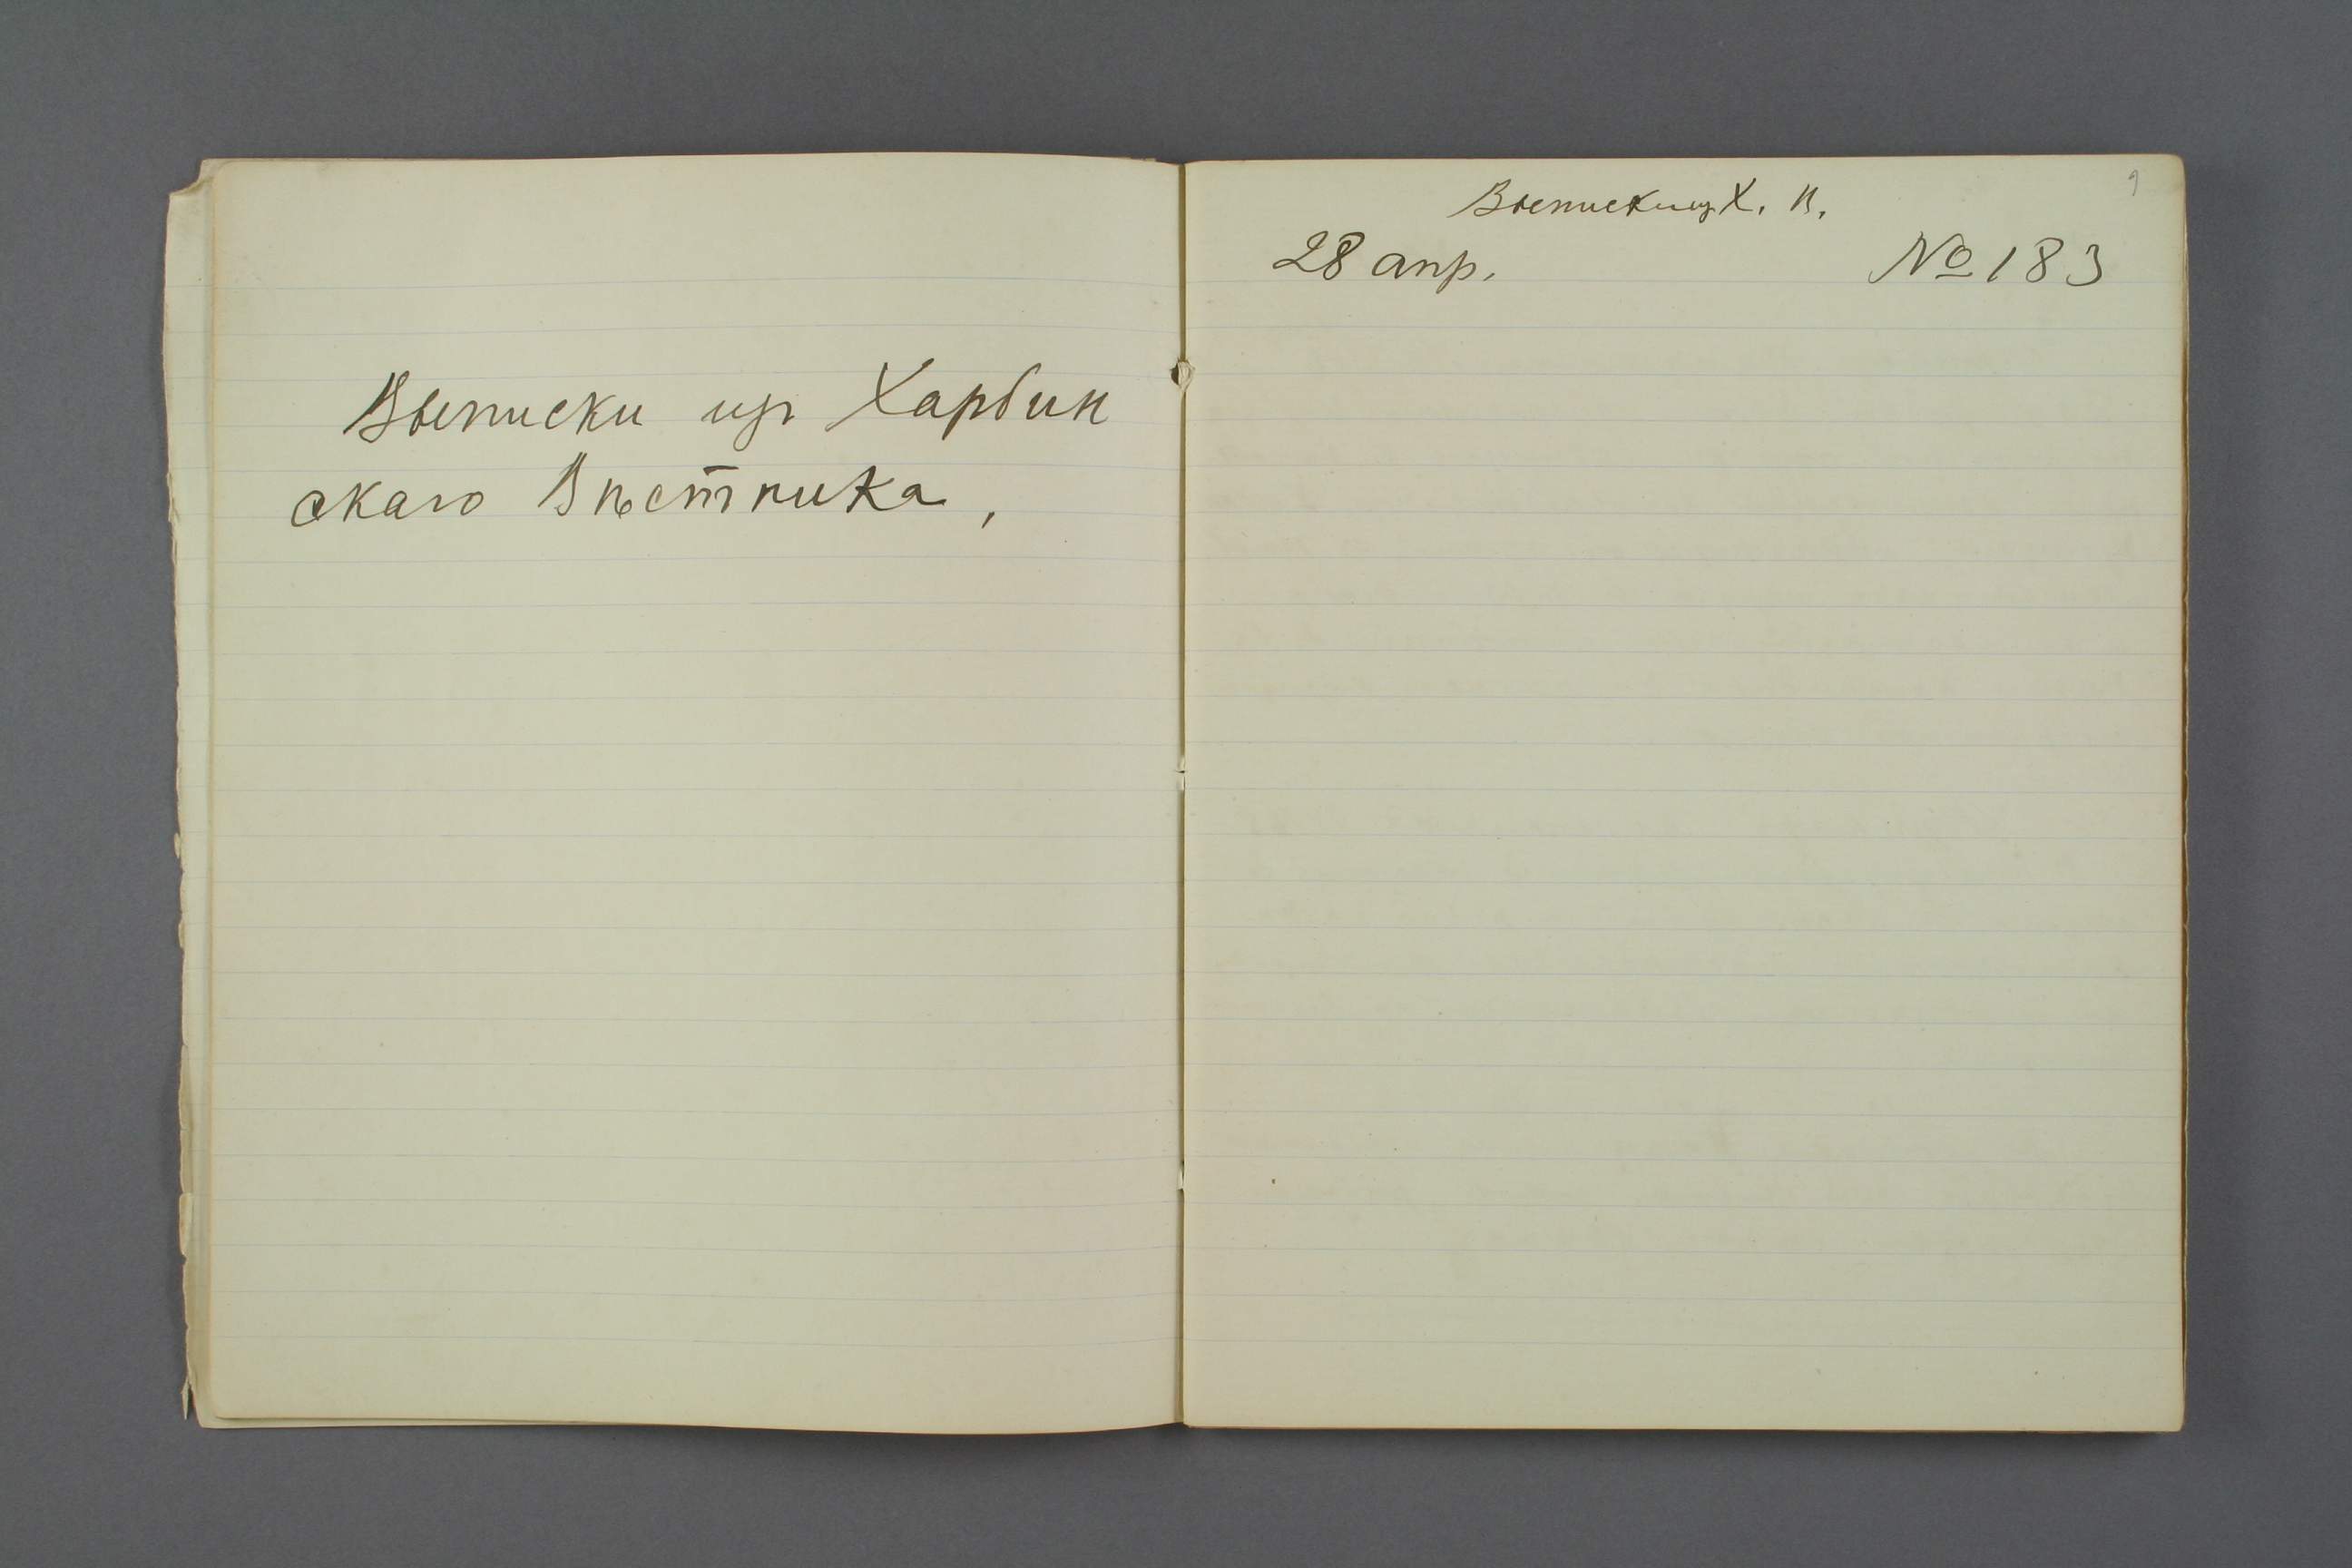 Выписки изъ Харбин
скаго Вѣстника,
9
Выписки из Х. В.
28 апр. № 183